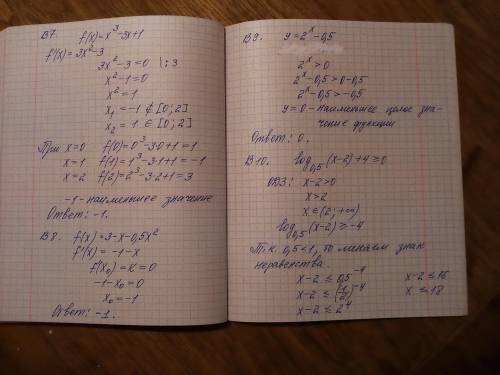 В7. f(x)=x³-3x+1
f'(x)=3x²-3
3x²-3=0 |:3
x²-1=0
x²=1
x₁=-1 ∉ [0;2]
x₂=1 ∈ [0;2]
При x=0 f(0)=0³-3·0+1=1
x=1 f(1)=1³-3·1+1=-1
x=2 f(2)=2³-3·2+1=3
-1-наименьшее значение
Ответ: -1.
В8. f(x)=3-x-0,5x²
f'(x)=-1-x
f'(x₀)=к=0
-1-x₀=0
x₀=-1
Ответ: -1.
В9. y=2ˣ-0,5
2ˣ>0
2ˣ-0,5>0-0,5
2ˣ-0,5>-0,5
y=0-наименьшее целое зна-
чение функции
Ответ: 0.
В10. log₀,₅(x-2)+4≥0
ОДЗ: x-2>0
x>2
x∈(2;+∞)
log₀,₅(x-2)≥-4
Т.к. 0,5<1, то меняем знак
неравенства
x-2≤0,5⁻⁴
x-2≤(1/2)⁻⁴
x-2≤2⁴
x-2≤16
x≤18